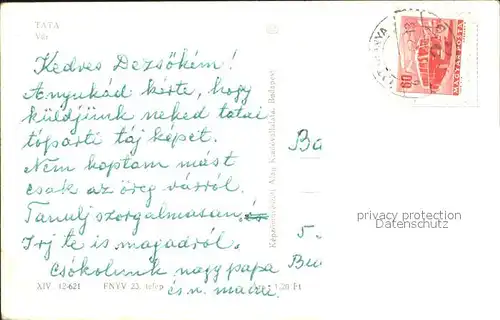 TATA
Vár
Kedves Dezsőkém!
Anyukád kérte, hogy
küldjünk neked tatai
tóparti táj képet.
Nem kaptam mást
csak az öreg várról.
Tanulj szorgalmasan,
Irj te is magadról.
Csókolunk nagypapa
és n. mama.
XIV. 12-621 FNYV 23. telep Ára: 1,20 Ft
Képzőművészeti Alap Kiadóvállalata, Budapest
Ba
5.
Bu
60
MAGYAR POSTA
privacy protection
Datenschutz